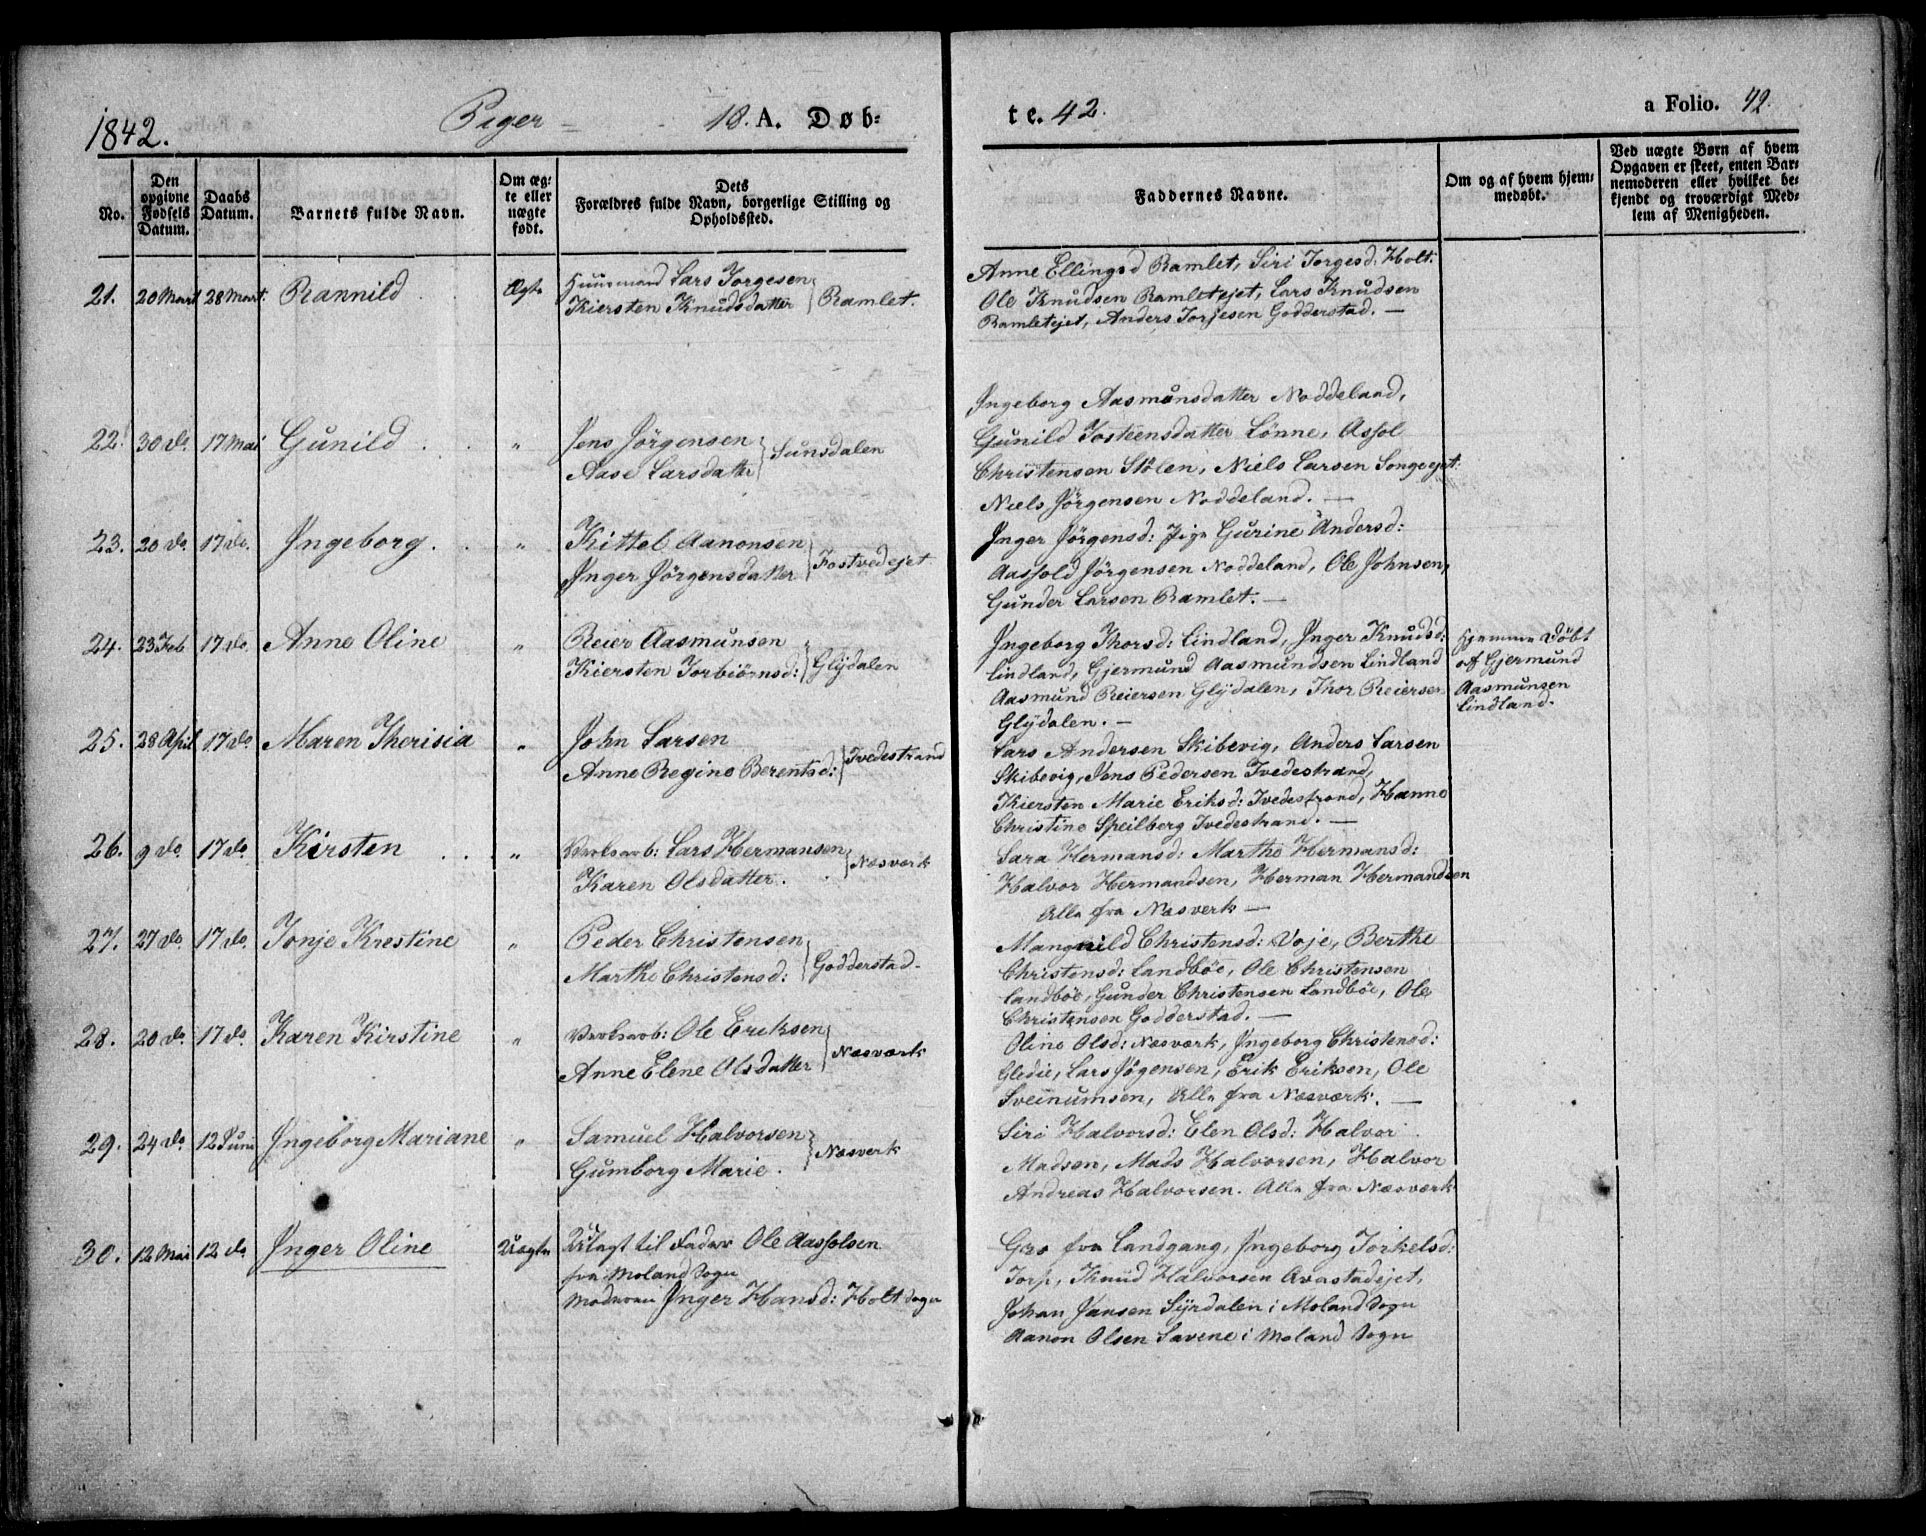 1842.
Piger
18. A. Døb-
te. 42.
a Folio. 42.
No.
Den opgivne Fødsels Datum.
Daabs Datum.
Barnets fulde Navn.
Om ægte eller uægte født.
Dets Forældres fulde Navn, borgerlige Stilling og Opholdssted.
Faddernes Navne.
Om og af hvem hjemmedøbt.
Ved uægte Børn af hvem Opgaven er skeet, enten Barnemoderen eller hvilket bekjendt og troværdigt Medlem af Menigheden.
21. 20 Mart 28 Mart. Rannild Ægte
Huusmand Lars Torgesen
Kiersten Knudsdatter } Ramlet.
Anne Ellingsd Ramlet, Siri Torgesd. Holt.
Ole Knudsen Ramletejet, Lars Knudsen
Ramletejet, Anders Torjesen Godderstad. —
22. 30 do. 17 Mai Gunild . . . "
Jens Jörgensen
Aase Larsdatter } Sunsdalen
Ingeborg Aasmunsdatter Noddeland,
Gunild Josteensdatter Lönne, Assol
Christensen Stölen, Niels Larsen Songeejet.
Niels Jörgensen Noddeland. —
23. 20 do. 17 do. Ingeborg. . . "
Kittel Aanonsen
Inger Jörgensdatter } Fostvedejet
Inger Jörgensd: Pige Gurine Andersd:
Aasfold Jörgensen Noddeland, Ole Johnsen,
Gunder Larsen Ramlet. —
24. 23 Feb 17 do. Anne Oline "
Reier Aasmunsen
Kiersten Torbiörnsd: } Glÿdalen
Ingeborg Thorsd: Lindland, Inger Knudsd:
Lindland, Gjermund Aasmundsen Lindland
Aasmund Reiersen Glÿdalen, Thor Reiersen
Glÿdalen. —
Hjemme Döbt
af Gjermund
Aasmunsen
Lindland.
25. 28 April 17 do. Maren Therisia "
John Larsen
Anne Regine Berentsd: } Tvedestrand
Lars Andersen Skibevig, Anders Larsen
Skibevig, Jens Pedersen Tvedestrand,
Kiersten Marie Eriksd: Tvedestrand, Hanne
Christine Speilberg Tvedestrand. —
26. 9 do. 17 do. Kirsten . . . "
Værksarb: Lars Hermansen,
Karen Olsdatter. } Næsværk
Sara Hermansd: Marthe Hermansd:
Halvor Hermandsen, Herman Hermandsen
Alle fra Næsverk —
27. 27 do. 17 do. Tonje Krestine "
Peder Christensen
Marthe Christensd: } Godderstad.
Mangnild Christensd: Voje, Berthe
Christensd: Landböe, Ole Christensen
Landböe, Gunder Christensen Landböe, Ole
Christensen Godderstad. —
28. 20 do. 17 do. Karen Kirstine "
Værksarb: Ole Eriksen
Anne Elene Olsdatter } Næsværk
Oline Olsd: Næsværk, Ingeborg Christensd:
Gledie, Lars Jögensen, Erik Eriksen, Ole
Sveinumsen, Alle fra Næsværk. —
29. 24 do 12 Juni Ingeborg Mariane "
Samuel Halvorsen
Gumborg Marie. } Næsverk
Siri Halvorsd: Elen Olsd: Halvor
Madsen, Mads Halvorsen, Halvor
Andreas Halvorsen. Alle fra Næsværk
30. 12 Mai 12 do Inger Oline Uægte
Udlagt til Fader Ole Aasfolsen
fra Moland Sogn
Moderen Inger Hansd: Holt Sogn
Gro fra Landgang, Ingeborg Torkelsd:
Torp, Knud Halvorsen Avastadejet,
Johan Jansen Sÿrdalen i Moland Sogn
Aanon Olsen Savene i Moland Sogn